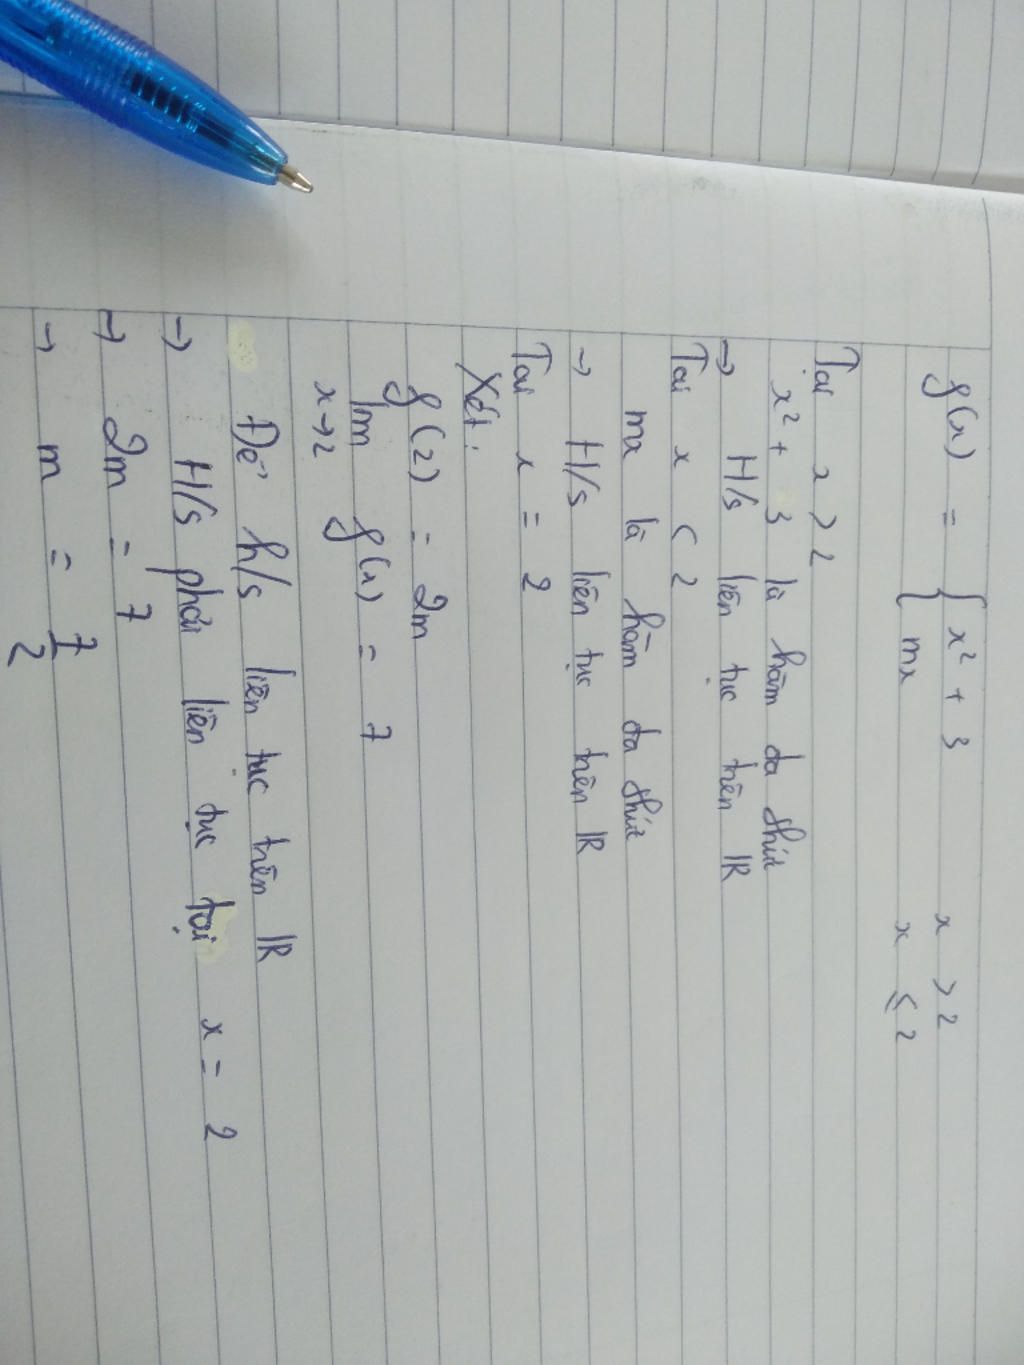 f(x) = { x² + 3 x > 2
mx x ≤ 2
Tại x > 2
x² + 3 là hàm đa thức
→ H/s liên tục trên IR
Tại x < 2
mx là hàm đa thức
→ H/s liên tục trên IR
Tại x = 2
Xét:
f(2) = 2m
lim f(x) = 7
x→2
Để h/s liên tục trên IR
→ H/s phải liên tục tại x = 2
→ 2m = 7
→ m = 7/2